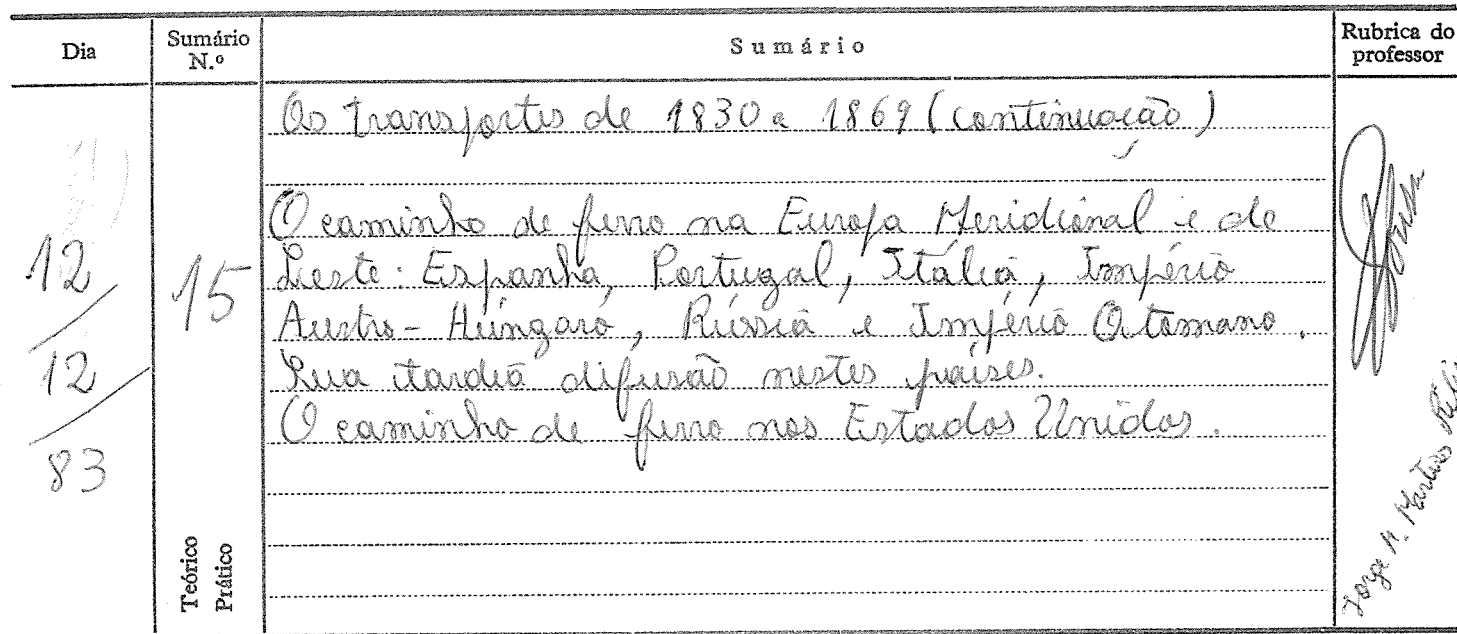 Dia
Sumário
N.º
Sumário
Rubrica do
professor
12
12
83
15
Teórico
Prático
Os transportes de 1830 a 1869 (continuação)
O caminho de ferro na Europa Meridional e de
Leste: Espanha, Portugal, Itália, Império
Austro-Húngaro, Rússia e Império Otomano.
Sua tardia difusão nestes países.
O caminho de ferro nos Estados Unidos.
Jorge M. Martins